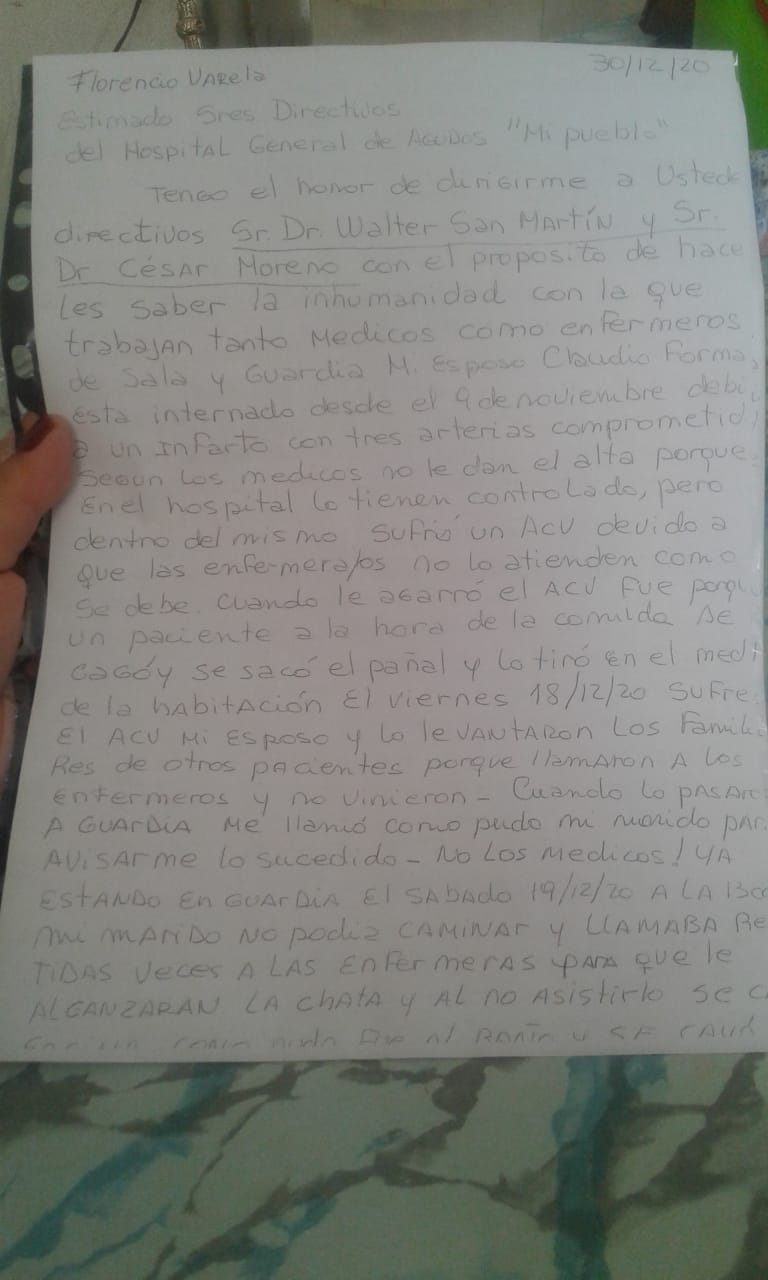 Florencio VARela
30/12/20
Estimado Sres Directivos
del Hospital General de Agudos "Mi pueblo"
Tengo el honor de dirigirme a Ustede
directivos Sr. Dr. Walter San Martín y Sr.
Dr César Moreno con el proposito de hace
les saber la inhumanidad con la que
trabajan tanto Medicos como enfermeros
de Sala y Guardia Mi Esposo Claudio
ésta internado desde el 9 de noviembre debi
a un Infarto con tres arterias comprometid
segun los medicos no le dan el alta porque
En el hospital lo tienen controlado, pero
dentro del mismo sufrió un ACV devido a
que las enfermera/os no lo atienden como
se debe. Cuando le agarró el ACV fue porqu
un paciente a la hora de la comida se
cagó y se sacó el pañal y lo tiró en el medi
de la habitación El viernes 18/12/20 sufre
El ACV Mi Esposo y lo levantaron los Famili
Res de otros pacientes porque llamaron a los
enfermeros y no vinieron - Cuando lo pasaro
A GUARDIA Me llamó como pudo mi marido par
AVisarme lo sucedido - No Los Medicos! YA
ESTANDO En GUARDIA El SABADO 19/12/20 A LA
mi maRido NO podia CAMINAR y LLAMABA Re
TIDAS Veces A LAS EnferMERAS PARA que le
ALCANZARAN LA chata y AL no Asistirlo se